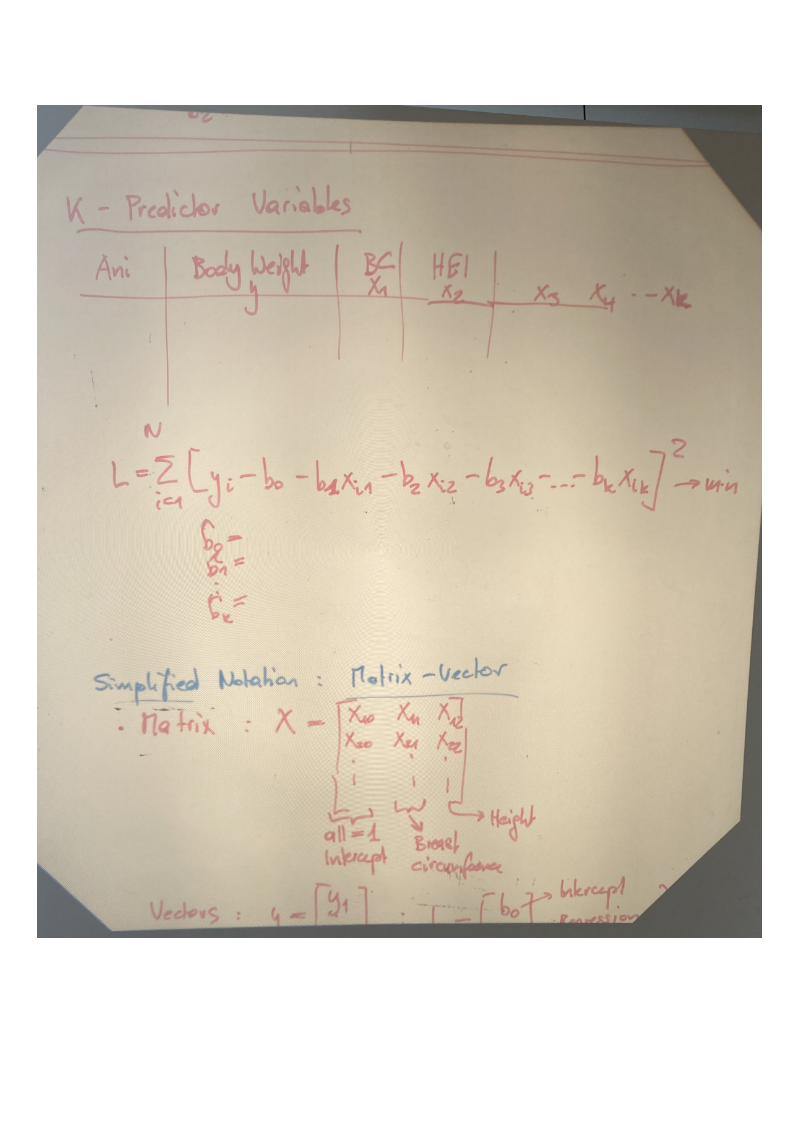 b2
K - Predictor Variables
Ani Body Weight BC HEI
y x1 x2 x3 x4 ... xk
N
L = Σ [yi - b0 - b1xi1 - b2xi2 - b3xi3 - ... - bkxik]² → min
i=1
b̂0 =
b̂1 =
:
b̂k =
Simplified Notation : Matrix-Vector
· Matrix : X = [x10 x11 x12
x20 x21 x22
all = 1 Breast → Height
Intercept circumference
Vectors : y = [y1] ; b = [b0] → Intercept
Regression